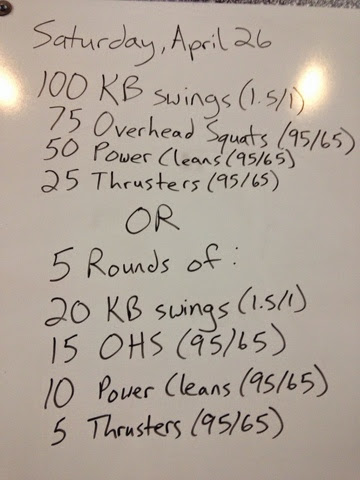 Saturday, April 26
100 KB swings (1.5/1)
75 Overhead Squats (95/65)
50 Power Cleans (95/65)
25 Thrusters (95/65)
OR
5 Rounds of:
20 KB swings (1.5/1)
15 OHS (95/65)
10 Power Cleans (95/65)
5 Thrusters (95/65)